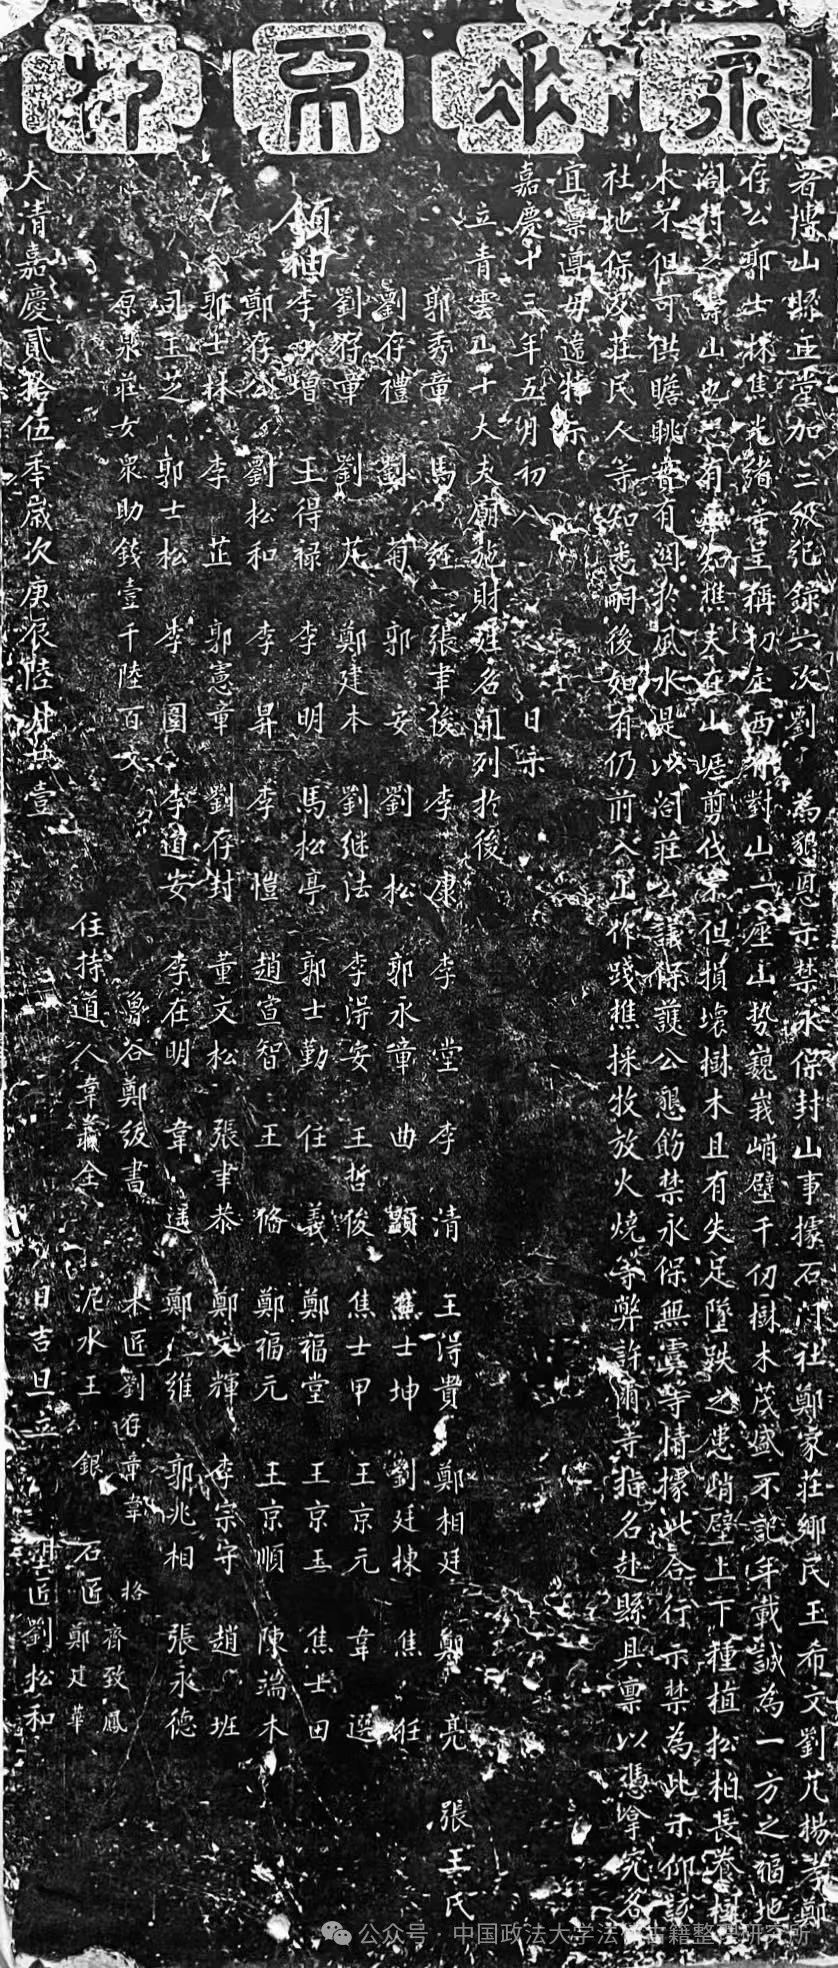 永垂不朽
署博山縣正堂加三級紀錄六次劉 為懇恩示禁永保封山事據石門社鄭家莊鄉民王希文劉芃楊芳鄭
存公郭士林焦光緒等呈稱切庄西有對山一座山势巍峩峭壁千仞樹木茂盛不記年載誠為一方之福地
闔村之壽山也忽有無知樵夫在山嵫剪伐不但損壞樹木且有失足墜跌之患峭壁上下種植松柏長養樹
木不但可供瞻眺實有関於風水是以闔莊公議保護公懇飭禁永保無虞等情據此合行示禁為此示仰該
社地保及莊民人等知悉嗣後如有仍前入山作踐樵採牧放火燒等弊許爾等指名赴縣具禀以憑拿究各
宜禀遵毋違特示
嘉慶十三年五月初八 日示
立青雲山十大夫廟施財姓名開列於後
郭秀章 馬 經 張聿俊 李 康 李 堂 李 清 王淂貴 鄭相廷 鄭 亮 張王氏
劉存禮 劉 菊 郭 安 劉 松 郭永章 曲 顯 焦士坤 劉廷棟 焦 姙
劉存章 劉 芃 鄭建本 劉继法 李淂安 王哲俊 焦士甲 王京元 韋 選
領袖 李 增 王得禄 李 明 馬松亭 郭士勤 任 義 鄭福堂 王京玉 焦士田
鄭存公 劉松和 李 昇 李 愷 趙宣智 王 恪 鄭福元 王京順 陳瑞木
郭士林 李 芷 郭憲章 劉存封 董文松 張聿恭 鄭文輝 李宗守 趙 班
司玉芝 郭士松 李 圓 李道安 李在明 韋 選 鄭 維 郭兆相 張永德
原泉莊女衆助錢壹千陸百文 魯谷鄭绂書 木匠劉存章韋 格 齊致鳳
住持道人韋義全 泥水王 銀 石匠 鄭建華
大清嘉慶貳拾伍季歲次庚辰陸月廿壹 日吉旦立 匠劉松和
公众号·中国政法大学法律古籍整理研究所